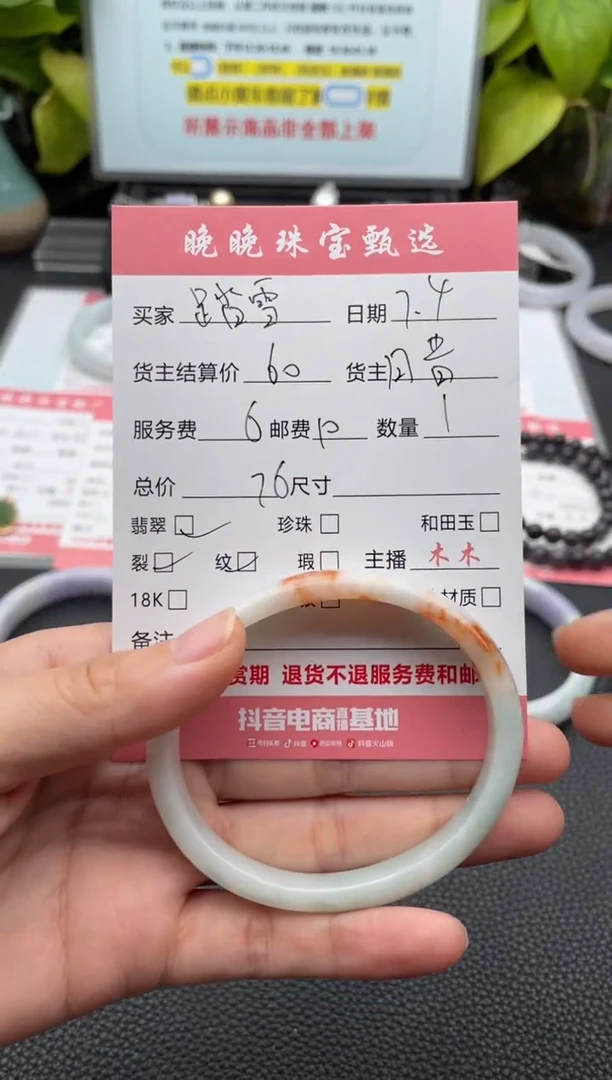 好展示商品非全部上架
晚晚珠宝甄选
买家 踏雪 日期 7.4
货主结算价 60 货主
服务费 6 邮费 10 数量 1
总价 76 尺寸
翡翠 珍珠 和田玉
裂 纹 瑕 主播 木木
18K 材质
备注
赏期 退货不退服务费和邮
抖音电商直播基地
今日头条 抖音 西瓜视频 抖音火山版